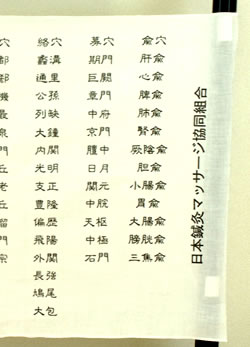 穴 絡穴 募穴 兪穴
都 蠡溝 期門 肝兪
郄 通里 巨闕 心兪
機 公孫 章門 脾兪
最 列缺 中府 肺兪
泉 大鐘 京門 腎兪
門 内関 膻中 厥陰兪
丘 光明 日月 胆兪
老 支正 関元 小腸兪
丘 豊隆 中脘 胃兪
溜 偏歴 天枢 大腸兪
門 飛陽 中極 膀胱兪
宗 外関 石門 三焦兪
長強
鳩尾
大包
日本鍼灸マッサージ協同組合